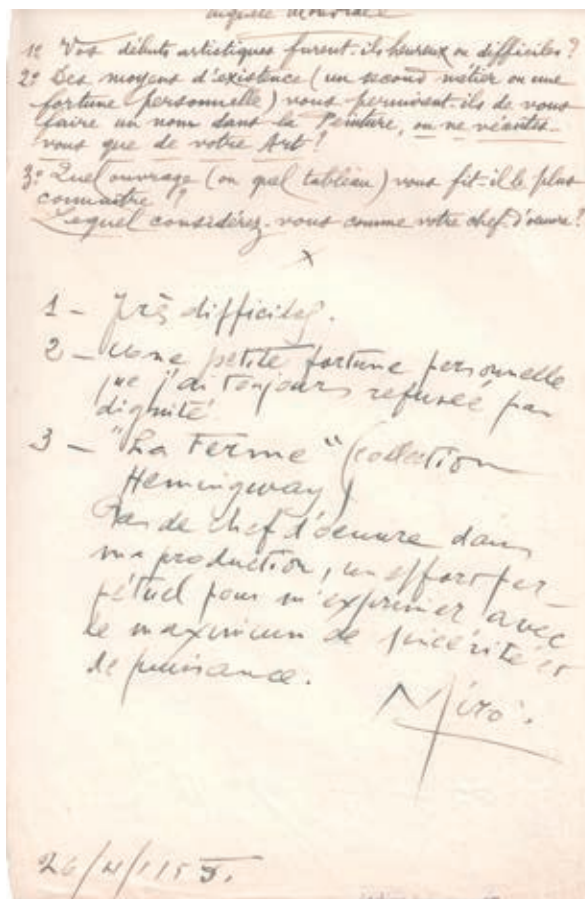 enquête mondiale
1º Vos débuts artistiques furent-ils heureux ou difficiles ?
2º Des moyens d'existence (un second métier ou une
fortune personnelle) vous permirent-ils de vous
faire un nom dans la Peinture, ou ne vécûtes-
vous que de votre Art ?
3º Quel ouvrage (ou quel tableau) vous fit-il le plus
connaître ?
Lequel considérez-vous comme votre chef-d'œuvre ?
x
1 - Très difficiles.
2 - Une petite fortune personnelle
que j'ai toujours refusée par
dignité.
3 - "La Ferme" (collection
Hemingway)
Pas de chef d'oeuvre dans
ma production, un effort per-
pétuel pour m'exprimer avec
le maximum de sincérité et
de puissance.
Miró.